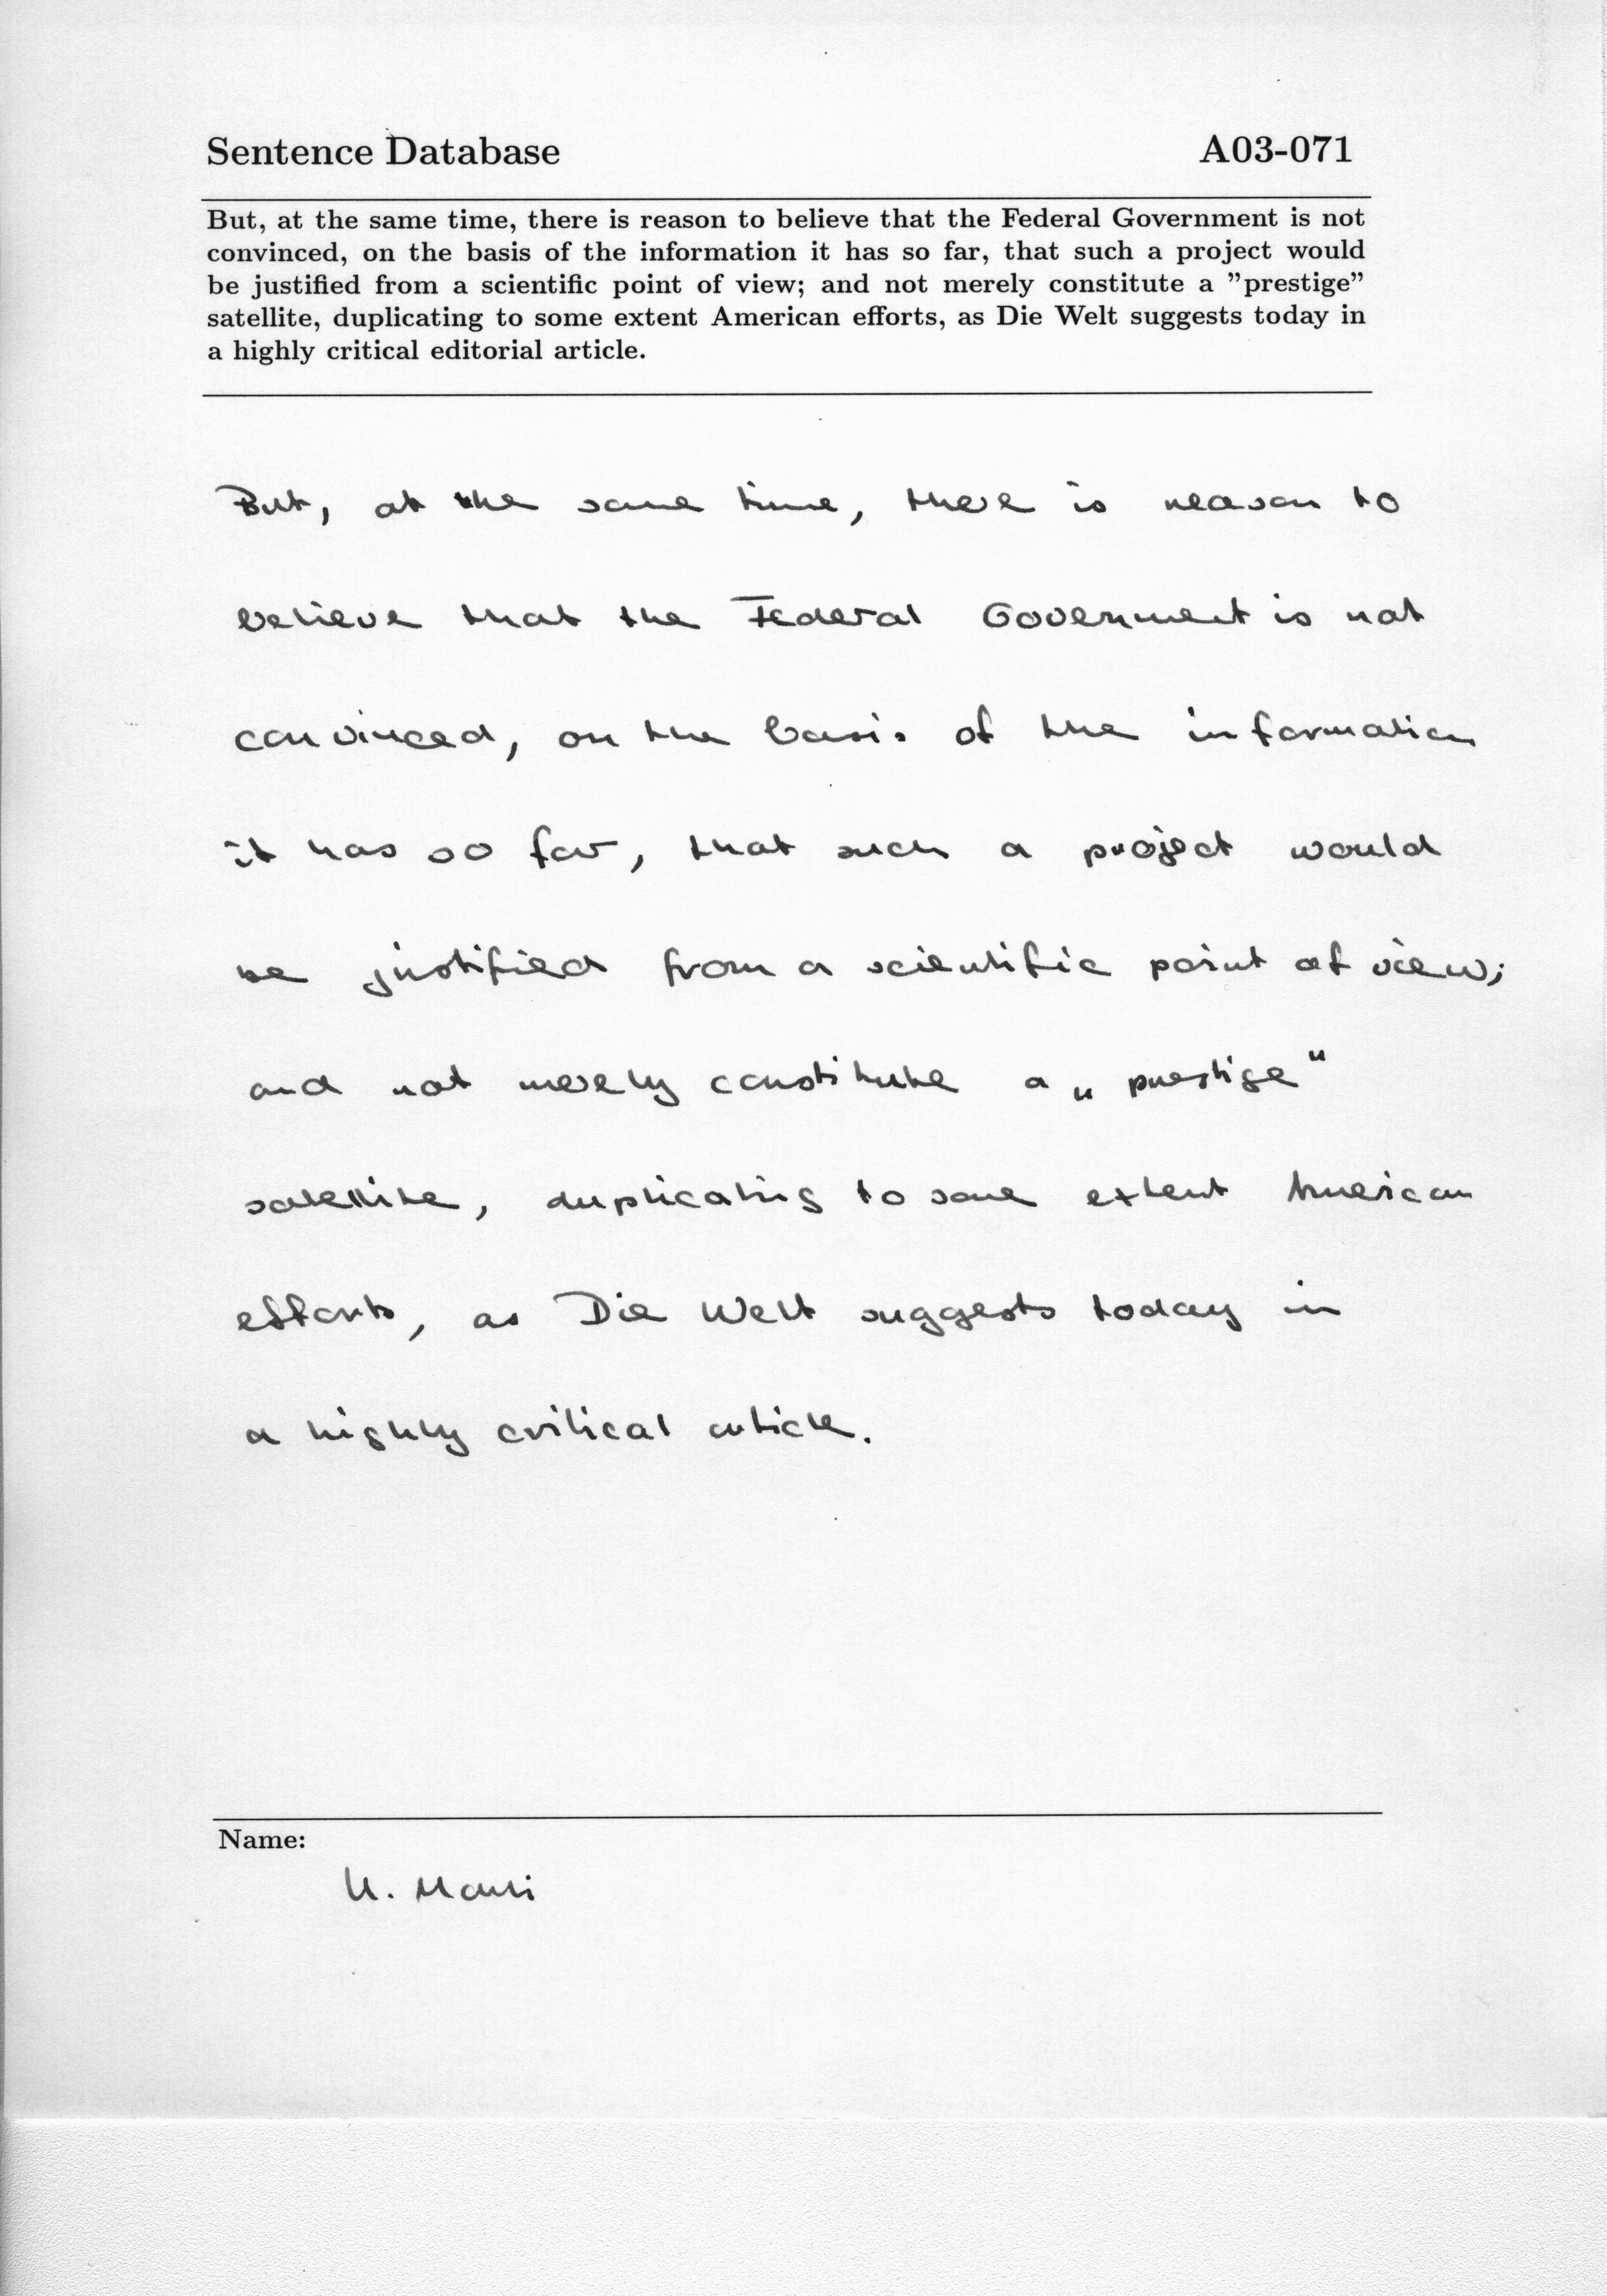 Sentence Database A03-071
But, at the same time, there is reason to believe that the Federal Government is not
convinced, on the basis of the information it has so far, that such a project would
be justified from a scientific point of view; and not merely constitute a ”prestige”
satellite, duplicating to some extent American efforts, as Die Welt suggests today in
a highly critical editorial article.
But, at the same time, there is reason to
believe that the Federal Government is not
convinced, on the basis of the information
it has so far, that such a project would
be justified from a scientific point of view;
and not merely constitute a „ prestige “
satellite, duplicating to some extent American
efforts, as Die Welt suggests today in
a highly critical article.
Name: